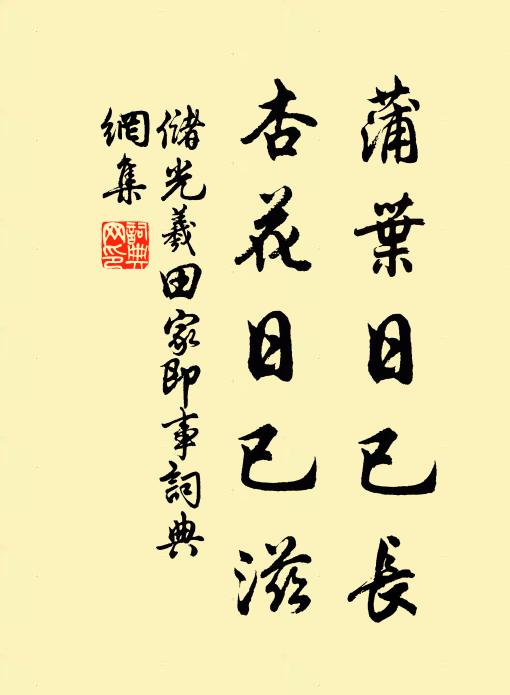 蒲葉日已長
杏花日已滋
儲光羲田家即事詞典
網集
詞典
网印